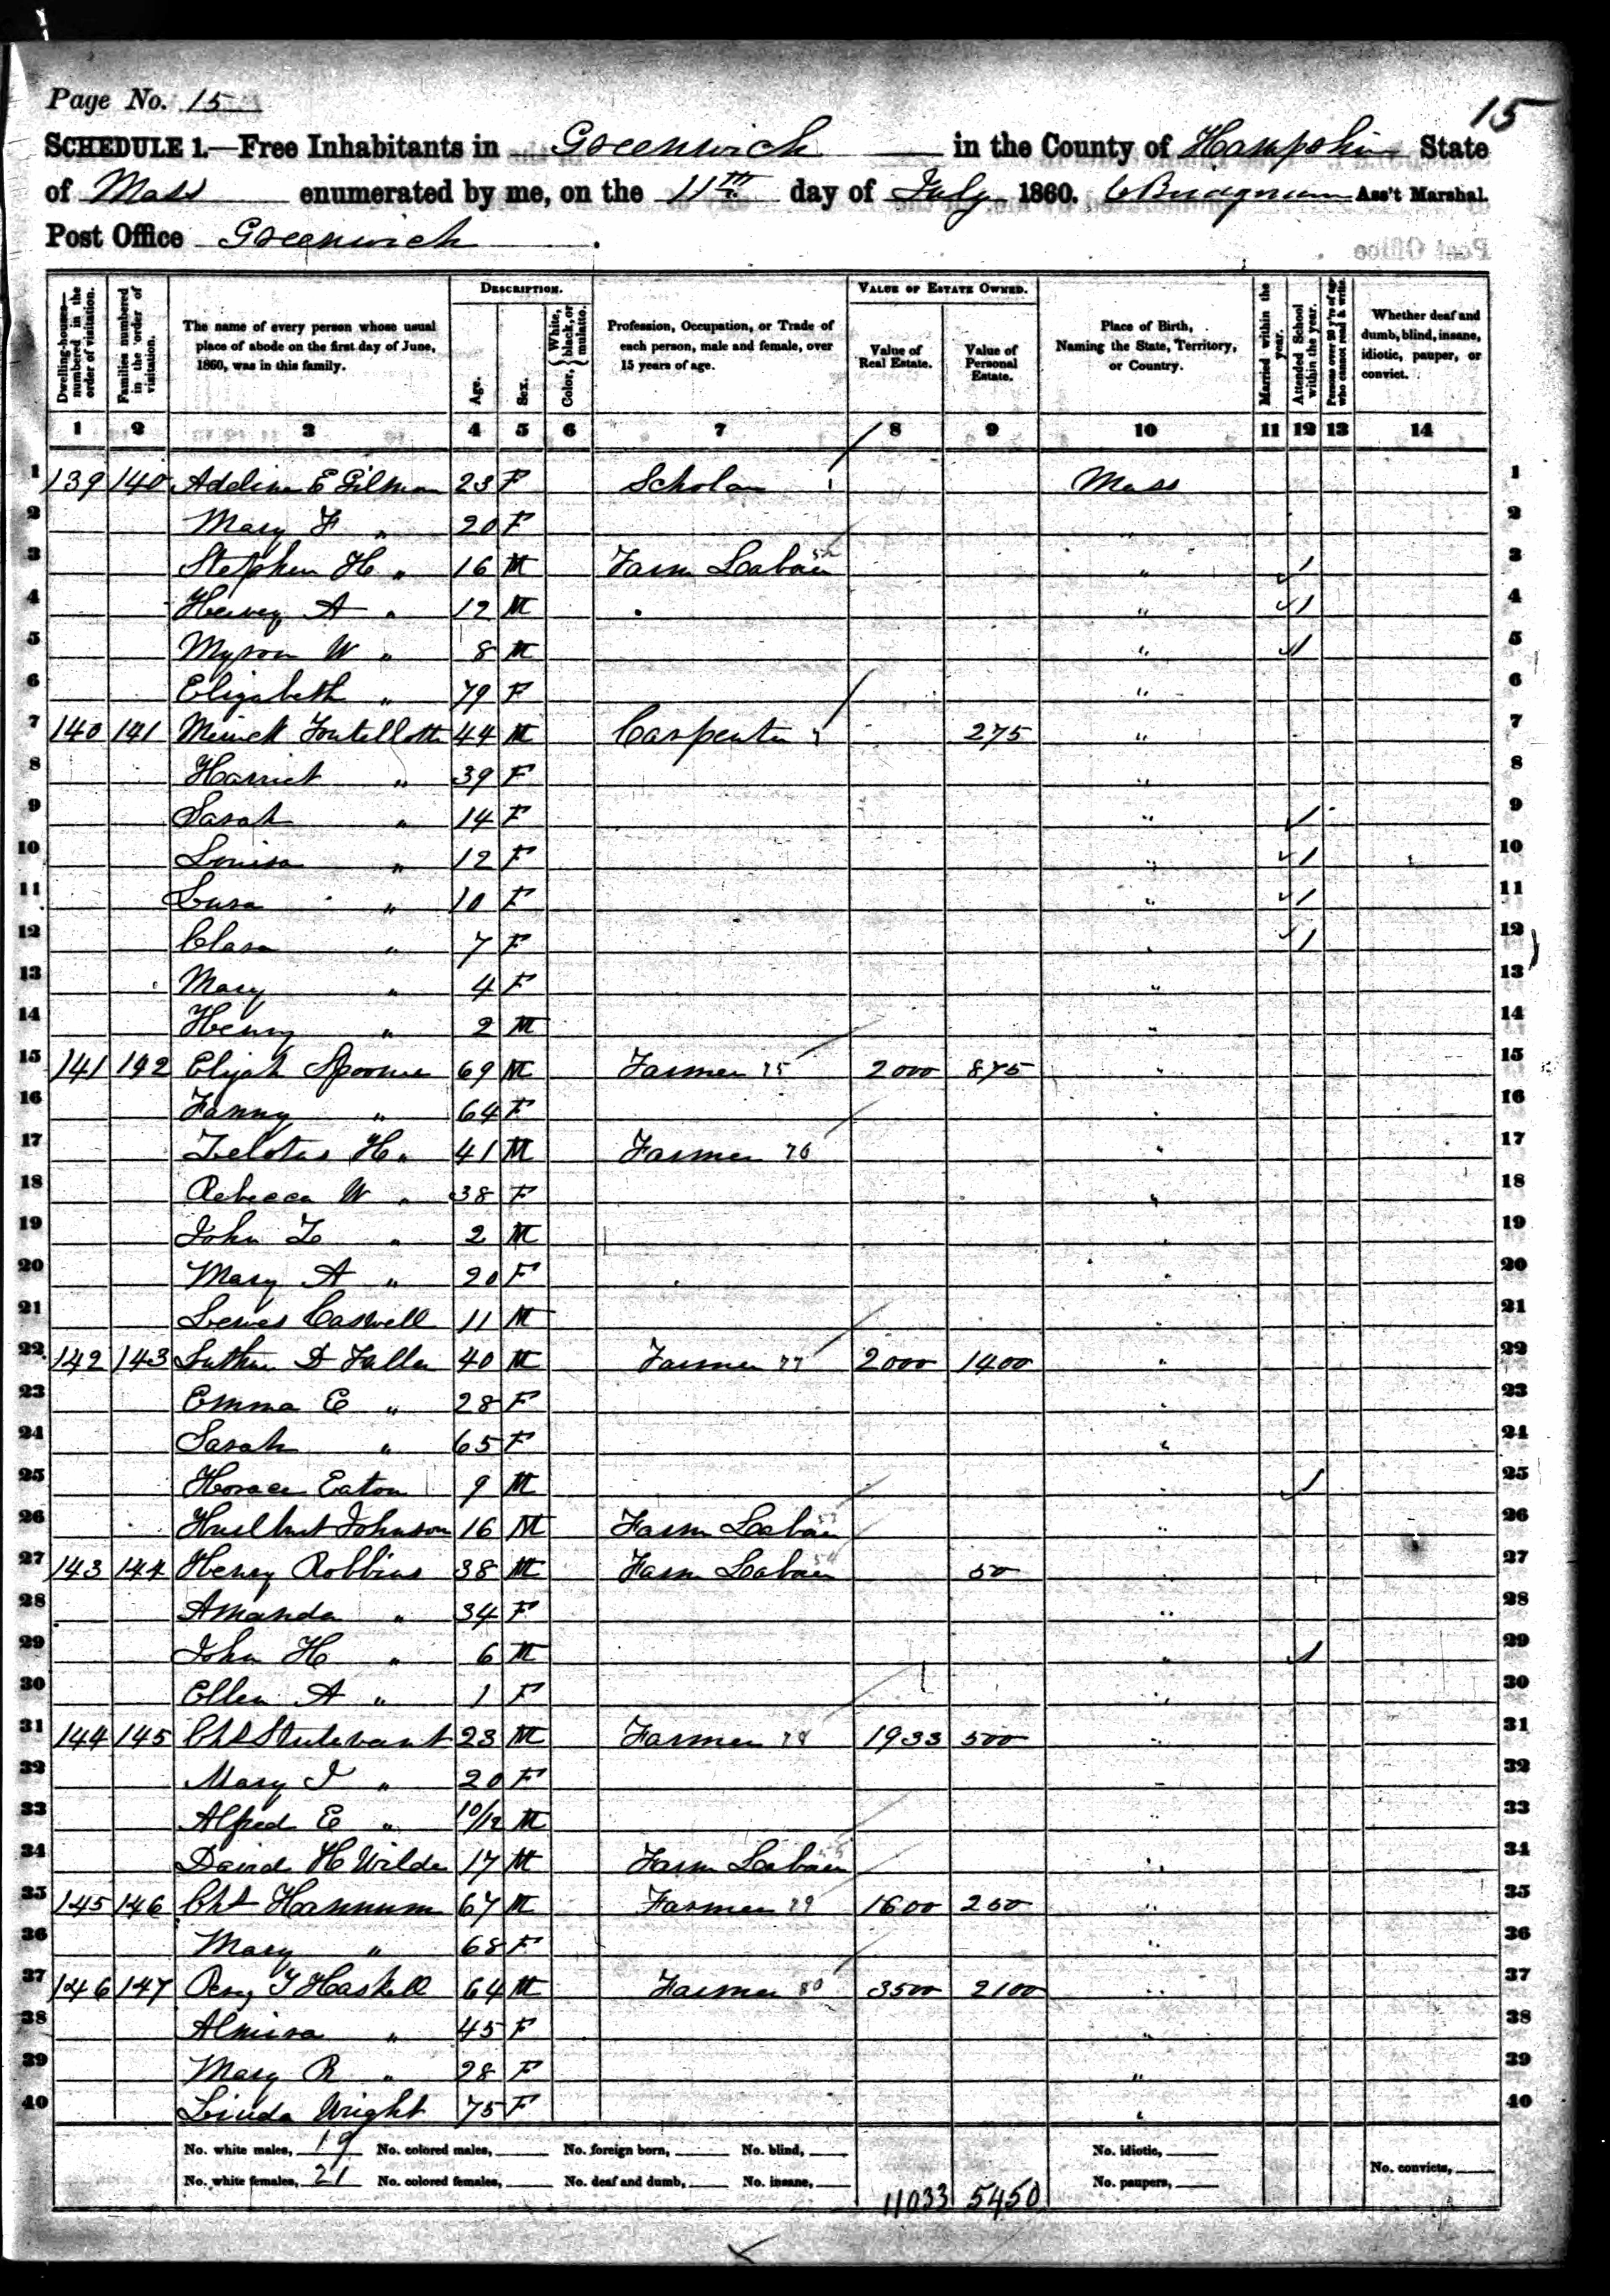 Page No. 15
15
SCHEDULE 1.—Free Inhabitants in Greenwich in the County of Hampshire State
of Mass enumerated by me, on the 11th day of July 1860. Ass't Marshal.
Post Office Greenwich.
DESCRIPTION. VALUE OF ESTATE OWNED.
Dwelling-houses—numbered in the order of visitation.
Families numbered in the order of visitation.
The name of every person whose usual place of abode on the first day of June, 1860, was in this family.
Age.
Sex.
Color, { White, black, or mulatto.
Profession, Occupation, or Trade of each person, male and female, over 15 years of age.
Value of Real Estate.
Value of Personal Estate.
Place of Birth, Naming the State, Territory, or Country.
Married within the year.
Attended School within the year.
Persons over 20 y'rs of age who cannot read & write.
Whether deaf and dumb, blind, insane, idiotic, pauper, or convict.
1 2 3 4 5 6 7 8 9 10 11 12 13 14
1 139 140 Adeline E Gilman 23 F Scholar Mass 1
2 Mary F " 20 F 2
3 Stephen H " 16 M Farm Labour 52 " / 3
4 Hervey A " 12 M " 1 4
5 Myron W " 8 M " 1 5
6 Elizabeth " 79 F " 6
7 140 141 44 M Carpenter 275 " 7
8 Harriet " 39 F " 8
9 Sarah " 14 F " / 9
10 Louisa " 12 F " 1 10
11 " 10 F " 1 11
12 Clara " 7 F " 1 12
13 Mary " 4 F " 13
14 Henry " 2 M " 14
15 141 142 Elijah Spooner 69 M Farmer 75 2000 875 " 15
16 Fanny " 64 F " 16
17 Zelotes H " 41 M Farmer 76 " 17
18 Rebecca W " 38 F " 18
19 John Z " 2 M " 19
20 Mary A " 20 F " 20
21 Lewes Caswell 11 M " 21
22 142 143 Luther D 40 M Farmer 77 2000 1400 " 22
23 Emma E " 28 F " 23
24 Sarah " 65 F " 24
25 Horace Eaton 9 M " / 25
26 Johnson 16 M Farm Labour 53 " 26
27 143 144 Henry Robbins 38 M Farm Labour 54 50 " 27
28 Amanda " 34 F " 28
29 John H " 6 M " / 29
30 Ellen A " 1 F " 30
31 144 145 Chs Stutevant 23 M Farmer 78 1933 500 " 31
32 Mary J " 20 F " 32
33 Alfred E " 10/12 M " 33
34 David H Wilder 17 M Farm Labour 55 " 34
35 145 146 Chs Hannum 67 M Farmer 79 1600 250 " 35
36 Mary " 68 F " 36
37 146 147 Haskell 64 M Farmer 80 3500 2100 " 37
38 Almira " 45 F " 38
39 Mary R " 28 F " 39
40 Linda Wright 75 F " 40
No. white males, 19 No. colored males, No. foreign born, No. blind, No. idiotic,
No. white females, 21 No. colored females, No. deaf and dumb, No. insane, 11033 5450 No. paupers, No. convicts,